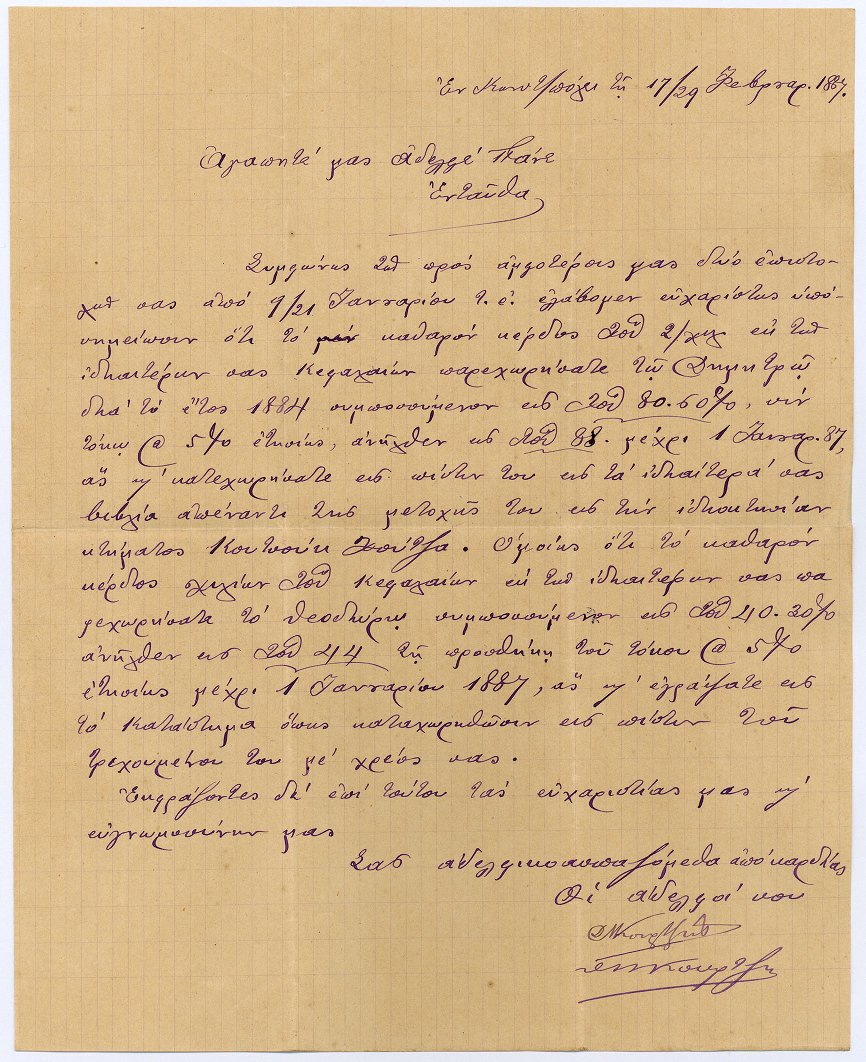 Ἐν Κων/πόλει τῇ 17/29 Φεβρουαρ. 1887.
Ἀγαπητέ μας ἀδελφέ Πάνε
Ἐνταῦθα
Συμφώνως τῇ πρός ἀμφοτέρους μας δύο ἐπιστο-
λῇ σας ἀπό 9/21 Ἰανουαρίου τ. ἔ. ἐλάβομεν εὐχαρίστως ὑπό-
σημείωσιν ὅτι τό καθαρόν κέρδος 2/χιλ ἐκ τῶν
ἰδιαιτέρων σας Κεφαλαίων παρεχωρήσατε τῷ Δημητρῷ
διά τό ἔτος 1884 συμποσούμενον εἰς 80.60%, σύν
τόκῳ @ 5% ἐτησίως, ἀνῆλθεν εἰς 88. μέχρι 1 Ἰανουαρ. 87,
ἅς κ' κατεχωρήσατε εἰς πίστιν του εἰς τά ἰδιαίτερά σας
βιβλία ἀπέναντι τῆς μετοχῆς του εἰς τήν ἰδιοκτησίαν
κτήματος Κουτσούκ. Ὁμοίως ὅτι τό καθαρόν
κέρδος χιλίων Κεφαλαίων ἐκ τῶν ἰδιαιτέρων σας πα
ρεχωρήσατε τό Θεοδώρῳ συμποσούμενον εἰς 40.30%
ἀνῆλθεν εἰς 44 τῇ προσθήκῃ τοῦ τόκου @ 5%
ἐτησίως μέχρι 1 Ἰανουαρίου 1887, ἅς κ' ἐγράψατε εἰς
τό Κατάστημα ὅπως καταχωρηθῶσιν εἰς πίστιν τοῦ
τρεχουμένου του μέ χρέος σας.
Ἐκφράζοντες δέ ἐπί τούτου τάς εὐχαριστίας μας κ'
εὐγνωμοσύνην μας
Σας ἀδελφικοασπαζόμεθα ἀπό καρδίας
Οἱ ἀδελφοί σου
ΔΜΚουρτζῆς
Κουρτζη